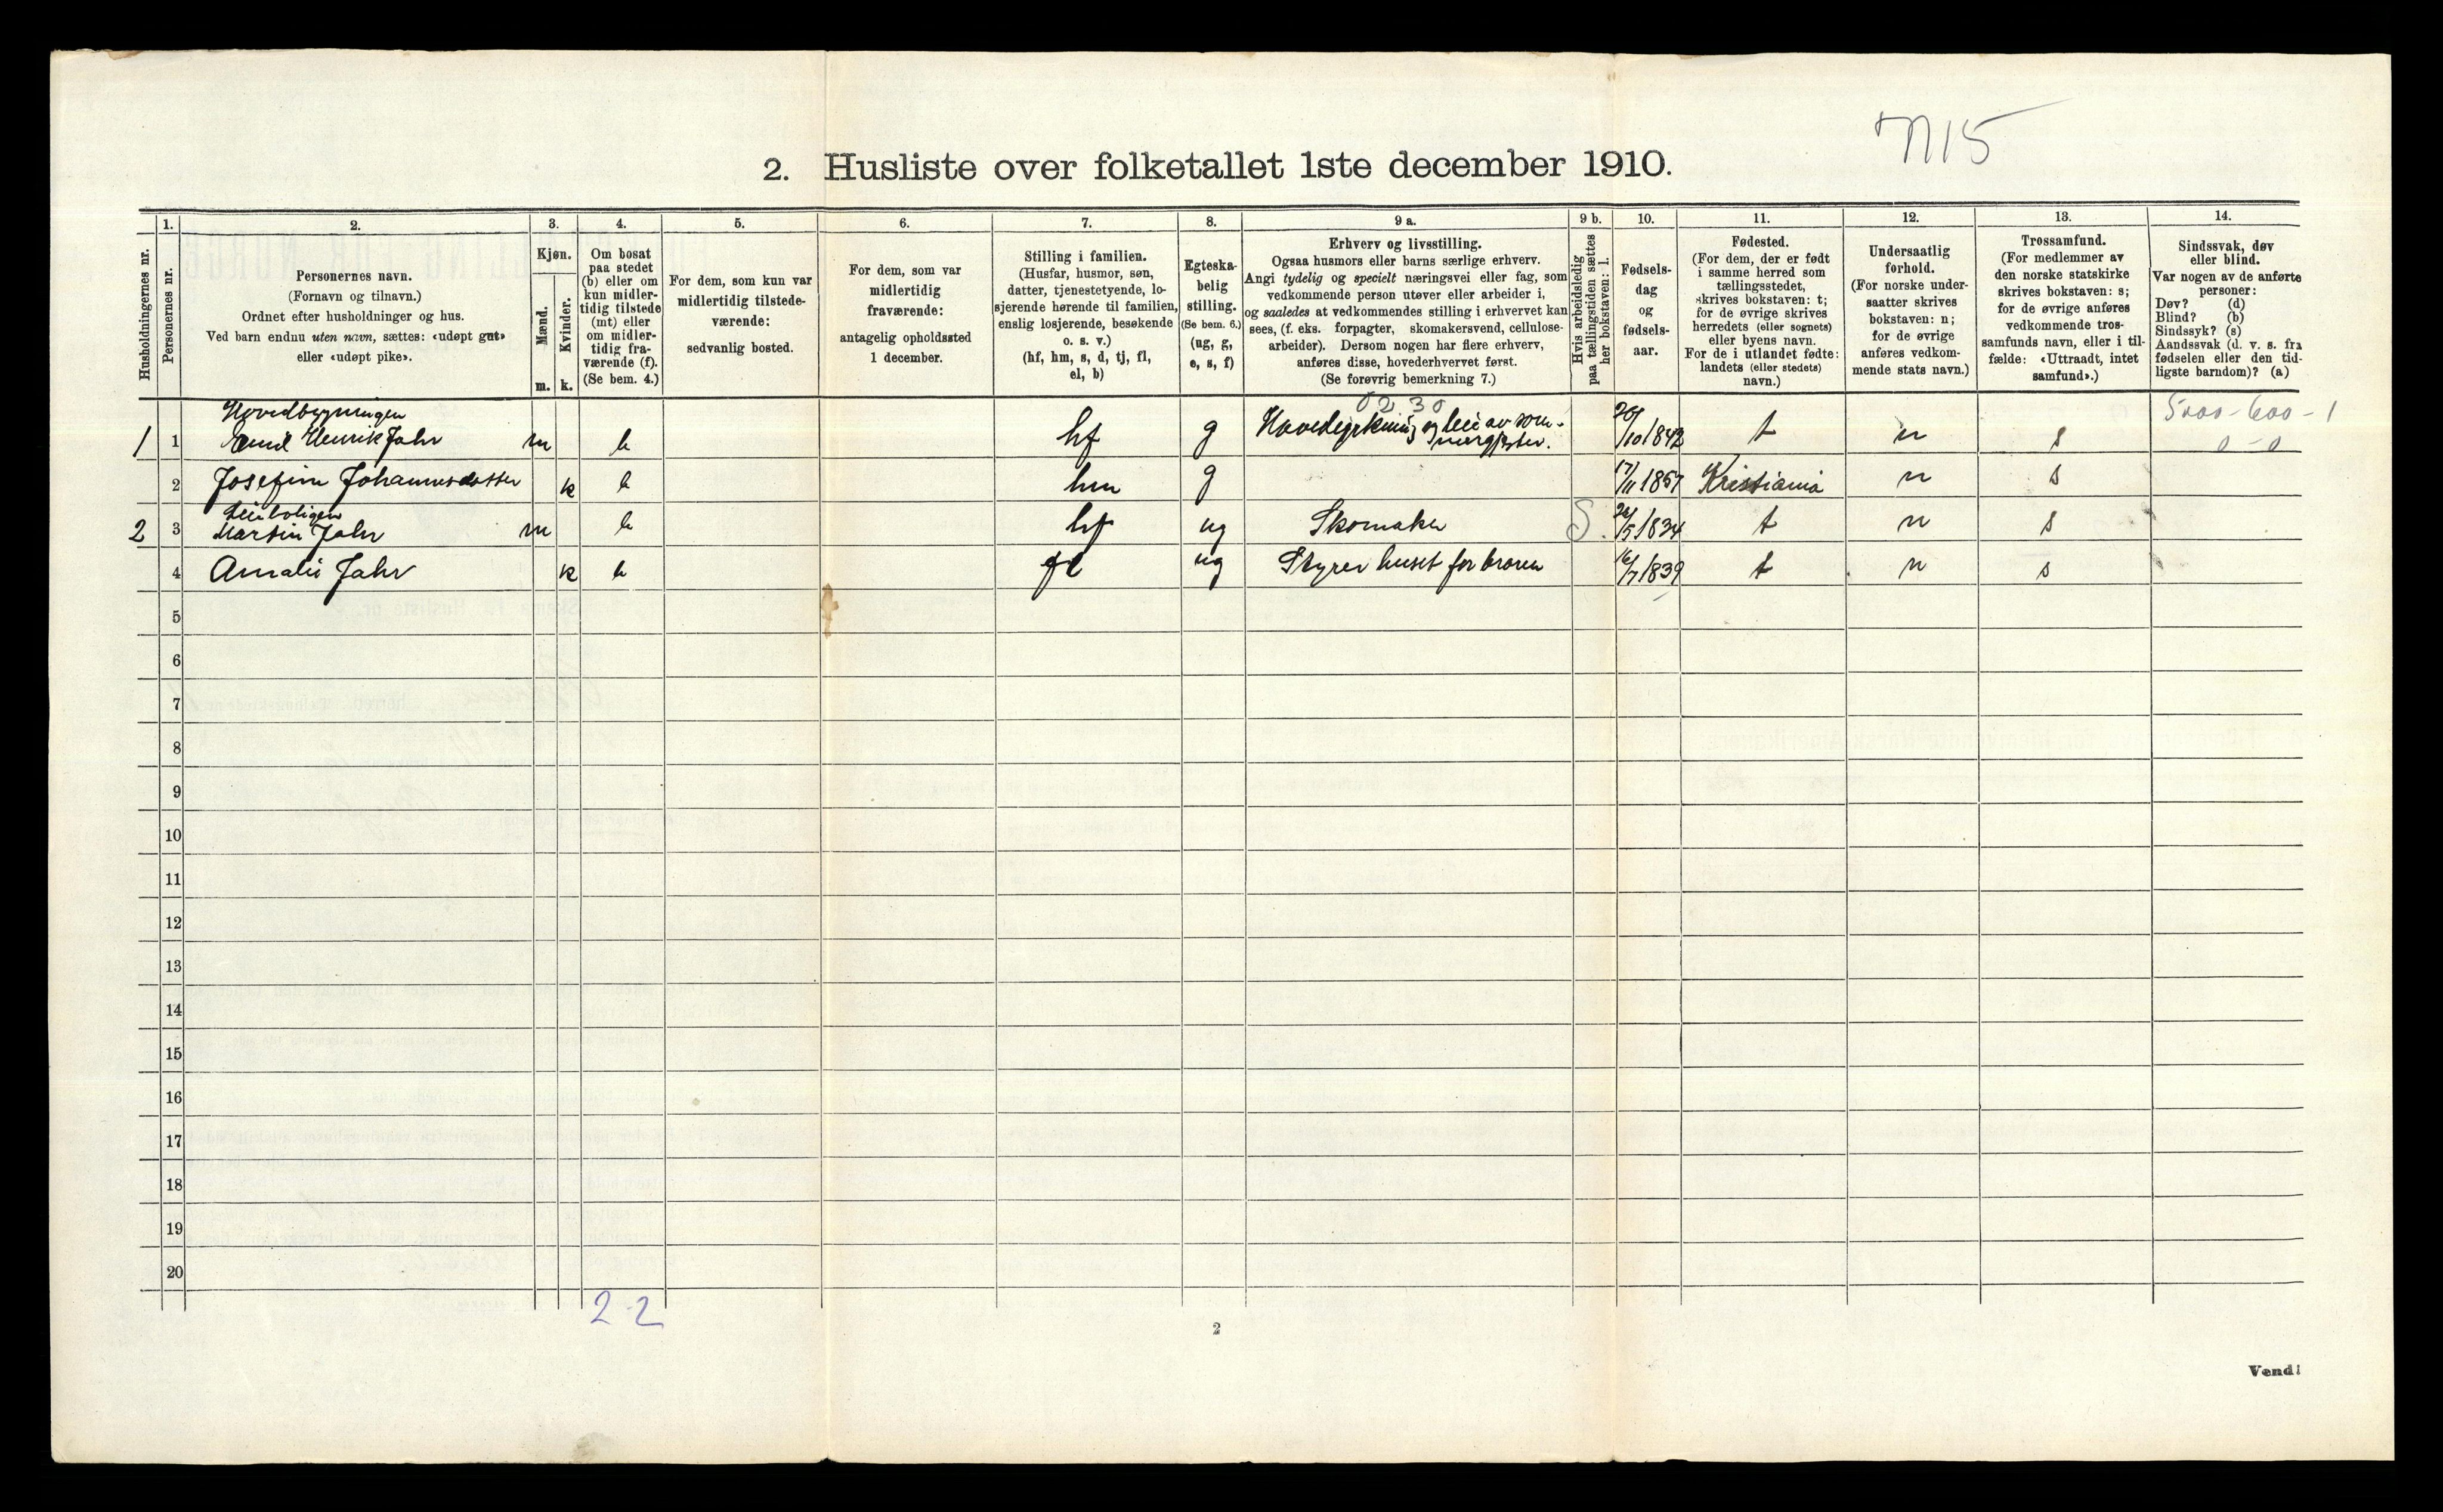 715
2. Husliste over folketallet 1ste december 1910.
Husholdningernes nr.
1.
Personernes nr.
2.
Personernes navn.
(Fornavn og tilnavn.)
Ordnet efter husholdninger og hus.
Ved barn endnu uten navn, sættes: «udøpt gut»
eller «udøpt pike».
3.
Kjøn.
Mænd.
Kvinder.
m. k.
4.
Om bosat
paa stedet
(b) eller om
kun midler-
tidig tilstede
(mt) eller
om midler-
tidig fra-
værende (f).
(Se bem. 4.)
5.
For dem, som kun var
midlertidig tilstede-
værende:
sedvanlig bosted.
6.
For dem, som var
midlertidig
fraværende:
antagelig opholdssted
1 december.
7.
Stilling i familien.
(Husfar, husmor, søn,
datter, tjenestetyende, lo-
sjerende hørende til familien,
enslig losjerende, besøkende
o. s. v.)
(hf, hm, s, d, tj, fl,
el, b)
8.
Egteska-
belig
stilling.
(Se bem. 6.)
(ug, g,
e, s, f)
9 a.
Erhverv og livsstilling.
Ogsaa husmors eller barns særlige erhverv.
Angi tydelig og specielt næringsvei eller fag, som
vedkommende person utøver eller arbeider i,
og saaledes at vedkommendes stilling i erhvervet kan
sees, (f. eks. forpagter, skomakersvend, cellulose-
arbeider). Dersom nogen har flere erhverv,
anføres disse, hovederhvervet først.
(Se forøvrig bemerkning 7.)
9 b.
Hvis arbeidsledig
paa tællingstiden sættes
her bokstaven: l.
10.
Fødsels-
dag
og
fødsels-
aar.
11.
Fødested.
(For dem, der er født
i samme herred som
tællingsstedet,
skrives bokstaven: t;
for de øvrige skrives
herredets (eller sognets)
eller byens navn.
For de i utlandet fødte:
landets (eller stedets)
navn.)
12.
Undersaatlig
forhold.
(For norske under-
saatter skrives
bokstaven: n;
for de øvrige
anføres vedkom-
mende stats navn.)
13.
Trossamfund.
(For medlemmer av
den norske statskirke
skrives bokstaven: s;
for de øvrige anføres
vedkommende tros-
samfunds navn, eller i til-
fælde: «Uttraadt, intet
samfund».)
14.
Sindssvak, døv
eller blind.
Var nogen av de anførte
personer:
Døv? (d)
Blind? (b)
Sindssyk? (s)
Aandssvak (d. v. s. fra
fødselen eller den tid-
ligste barndom)? (a)
Hovedbygningen 0230 5000-600-1
1 1 Emil Henrik Jahr m b hf g Havedyrkning og leie av som- 26/10 1842 t n s 0-0
mergjester.
2 Josefine Johannesdatter k b hm g 17/11 1857 Kristiania n s
Leieboligen
2 3 Martin Jahr m b hf ug Skomaker S. 26/5 1834 t n s
4 Amalie Jahr k b fl ug Styrer huset for broren 16/7 1839 t n s
5
6
7
8
9
10
11
12
13
14
15
16
17
18
19
20
2-2
2
Vend!